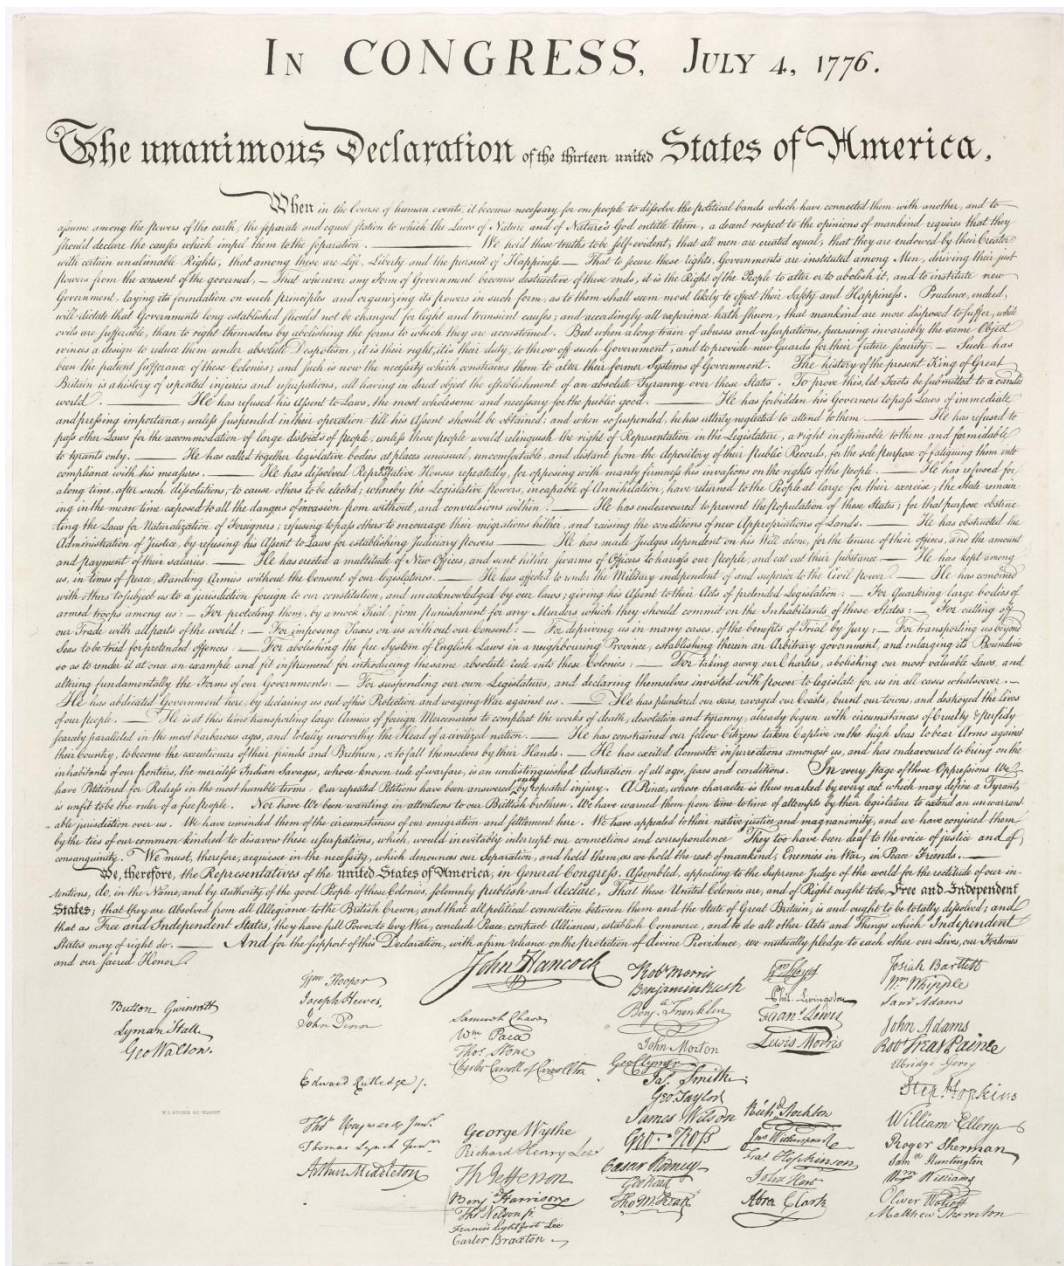 IN CONGRESS, JULY 4, 1776.
The unanimous Declaration of the thirteen united States of America,
When in the Course of human events, it becomes necessary for one people to dissolve the political bands which have connected them with another, and to
assume among the powers of the earth, the separate and equal station to which the Laws of Nature and of Nature's God entitle them, a decent respect to the opinions of mankind requires that they
should declare the causes which impel them to the separation. — We hold these truths to be self-evident, that all men are created equal, that they are endowed by their Creator
with certain unalienable Rights, that among these are Life, Liberty and the pursuit of Happiness — That to secure these rights, Governments are instituted among Men, deriving their just
powers from the consent of the governed, — That whenever any Form of Government becomes destructive of these ends, it is the Right of the People to alter or to abolish it, and to institute new
Government, laying its foundation on such principles and organizing its powers in such form, as to them shall seem most likely to effect their Safety and Happiness. Prudence, indeed,
will dictate that Governments long established should not be changed for light and transient causes; and accordingly all experience hath shewn, that mankind are more disposed to suffer, while
evils are sufferable, than to right themselves by abolishing the forms to which they are accustomed. But when a long train of abuses and usurpations, pursuing invariably the same Object
evinces a design to reduce them under absolute Despotism, it is their right, it is their duty, to throw off such Government, and to provide new Guards for their future security. — Such has
been the patient sufferance of these Colonies; and such is now the necessity which constrains them to alter their former Systems of Government. The history of the present King of Great
Britain is a history of repeated injuries and usurpations, all having in direct object the establishment of an absolute Tyranny over these States. To prove this, let Facts be submitted to a candid
world. — He has refused his Assent to Laws, the most wholesome and necessary for the public good. — He has forbidden his Governors to pass Laws of immediate
and pressing importance, unless suspended in their operation till his Assent should be obtained; and when so suspended, he has utterly neglected to attend to them. — He has refused to
pass other Laws for the accommodation of large districts of people, unless those people would relinquish the right of Representation in the Legislature, a right inestimable to them and formidable
to tyrants only. — He has called together legislative bodies at places unusual, uncomfortable, and distant from the depository of their Public Records, for the sole purpose of fatiguing them into
compliance with his measures. — He has dissolved Representative Houses repeatedly, for opposing with manly firmness his invasions on the rights of the people. — He has refused for
a long time, after such dissolutions, to cause others to be elected; whereby the Legislative powers, incapable of Annihilation, have returned to the People at large for their exercise; the State remain
ing in the mean time exposed to all the dangers of invasion from without, and convulsions within. — He has endeavoured to prevent the Population of these States; for that purpose obstruc
ting the Laws for Naturalization of Foreigners; refusing to pass others to encourage their migrations hither, and raising the conditions of new Appropriations of Lands. — He has obstructed the
Administration of Justice, by refusing his Assent to Laws for establishing Judiciary powers — He has made Judges dependent on his Will alone, for the tenure of their offices, and the amount
and payment of their salaries. — He has erected a multitude of New Offices, and sent hither swarms of Officers to harrass our people, and eat out their substance — He has kept among
us, in times of peace, Standing Armies without the Consent of our legislatures. — He has affected to render the Military independent of and superior to the Civil power — He has combined
with others to subject us to a jurisdiction foreign to our constitution, and unacknowledged by our laws; giving his Assent to their Acts of pretended Legislation: — For Quartering large bodies of
armed troops among us: — For protecting them, by a mock Trial, from punishment for any Murders which they should commit on the Inhabitants of these States: — For cutting off
our Trade with all parts of the world: — For imposing Taxes on us without our Consent: — For depriving us in many cases, of the benefits of Trial by Jury; — For transporting us beyond
Seas to be tried for pretended offences — For abolishing the free System of English Laws in a neighbouring Province, establishing therein an Arbitrary government, and enlarging its Boundaries
so as to render it at once an example and fit instrument for introducing the same absolute rule into these Colonies: — For taking away our Charters, abolishing our most valuable Laws, and
altering fundamentally the Forms of our Governments: — For suspending our own Legislatures, and declaring themselves invested with power to legislate for us in all cases whatsoever. —
He has abdicated Government here, by declaring us out of his Protection and waging War against us. — He has plundered our seas, ravaged our Coasts, burnt our towns, and destroyed the lives
of our people. — He is at this time transporting large Armies of foreign Mercenaries to compleat the works of death, desolation and tyranny, already begun with circumstances of Cruelty & perfidy
scarcely paralleled in the most barbarous ages, and totally unworthy the Head of a civilized nation. — He has constrained our fellow Citizens taken Captive on the high Seas to bear Arms against
their Country, to become the executioners of their friends and Brethren, or to fall themselves by their Hands. — He has excited domestic insurrections amongst us, and has endeavoured to bring on the
inhabitants of our frontiers, the merciless Indian Savages, whose known rule of warfare, is an undistinguished destruction of all ages, sexes and conditions. In every stage of these Oppressions We
have Petitioned for Redress in the most humble terms: Our repeated Petitions have been answered only by repeated injury. A Prince, whose character is thus marked by every act which may define a Tyrant,
is unfit to be the ruler of a free people. Nor have We been wanting in attentions to our Brittish brethren. We have warned them from time to time of attempts by their legislature to extend an unwarrant
-able jurisdiction over us. We have reminded them of the circumstances of our emigration and settlement here. We have appealed to their native justice and magnanimity, and we have conjured them
by the ties of our common kindred to disavow these usurpations, which, would inevitably interrupt our connections and correspondence They too have been deaf to the voice of justice and of
consanguinity. We must, therefore, acquiesce in the necessity, which denounces our Separation, and hold them, as we hold the rest of mankind, Enemies in War, in Peace Friends. —
We, therefore, the Representatives of the united States of America, in General Congress, Assembled, appealing to the Supreme Judge of the world for the rectitude of our in-
tentions, do, in the Name, and by authority of the good People of these Colonies, solemnly publish and declare, That these United Colonies are, and of Right ought to be Free and Independent
States; that they are Absolved from all Allegiance to the British Crown, and that all political connection between them and the State of Great Britain, is and ought to be totally dissolved; and
that as Free and Independent States, they have full Power to levy War, conclude Peace, contract Alliances, establish Commerce, and to do all other Acts and Things which Independent
States may of right do. — And for the support of this Declaration, with a firm reliance on the protection of divine Providence, we mutually pledge to each other our Lives, our Fortunes
and our sacred Honor.
Button Gwinnett
Lyman Hall
Geo Walton.
Wm Hooper
Joseph Hewes,
John Penn
Edward Rutledge /.
Thos Heyward Junr.
Thomas Lynch Junr.
Arthur Middleton
John Hancock
Samuel Chase
Wm. Paca
Thos. Stone
Charles Carroll of Carrollton
George Wythe
Richard Henry Lee
Th Jefferson
Benj Harrison
Thos Nelson jr.
Francis Lightfoot Lee
Carter Braxton
Robt Morris
Benjamin Rush
Benj. Franklin
John Morton
Geo Clymer
Jas. Smith
Geo. Taylor
James Wilson
Geo. Ross
Caesar Rodney
Geo Read
Tho M:Kean
Wm Floyd
Phil. Livingston
Frans. Lewis
Lewis Morris
Richd. Stockton
Jno Witherspoon
Fras. Hopkinson
John Hart
Abra Clark
Josiah Bartlett
Wm. Whipple
Saml Adams
John Adams
Robt Treat Paine
Elbridge Gerry
Step. Hopkins
William Ellery
Roger Sherman
Saml Huntington
Wm. Williams
Oliver Wolcott
Matthew Thornton